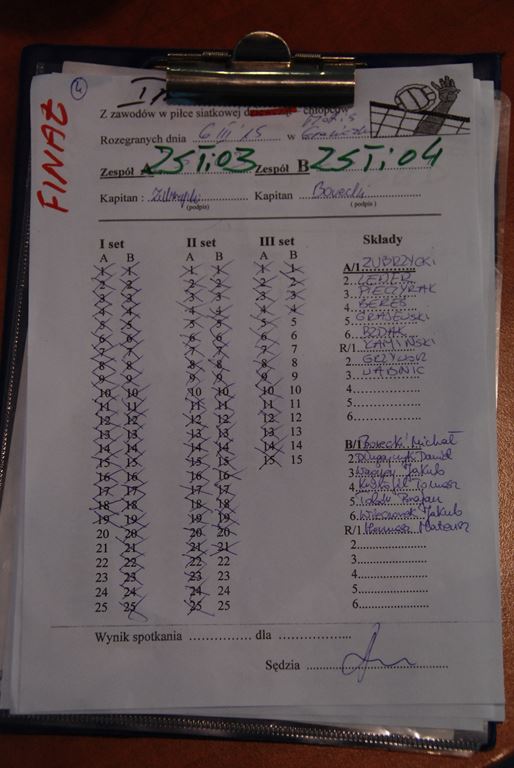 4
FINAŁ
Z zawodów w piłce siatkowej chłopców
Rozegranych dnia 6 III 15 w
Zespół A 25 Ti 03 Zespół B 25 Ti 04
Kapitan : Kapitan Borecki
(podpis) (podpis)
I set II set III set Składy
A B A B A B
1 1 1 1 1 1 A/1 ZUBRZYCKI
2 2 2 2 2 2 2.
3 3 3 3 3 3 3. PIECZYRAK
4 4 4 4 4 4 4. BEREŚ
5 5 5 5 5 5 5. GRAJEWSKI
6 6 6 6 6 6 6. BZDAK
7 7 7 7 7 7 R/1 KAMIŃSKI
8 8 8 8 8 8 2
9 9 9 9 9 9 3
10 10 10 10 10 10 4
11 11 11 11 11 11 5
12 12 12 12 12 12 6
13 13 13 13 13 13
14 14 14 14 14 14 B/1 Borecki Michał
15 15 15 15 15 15 2. Daniel
16 16 16 16 3. Jakub
17 17 17 17 4. Tomasz
18 18 18 18 5.
19 19 19 19 6. Wieczorek Jakub
20 20 20 20 R/1 Mateusz
21 21 21 21 2
22 22 22 22 3
23 23 23 23 4
24 24 24 24 5
25 25 25 25 6
Wynik spotkania dla
Sędzia